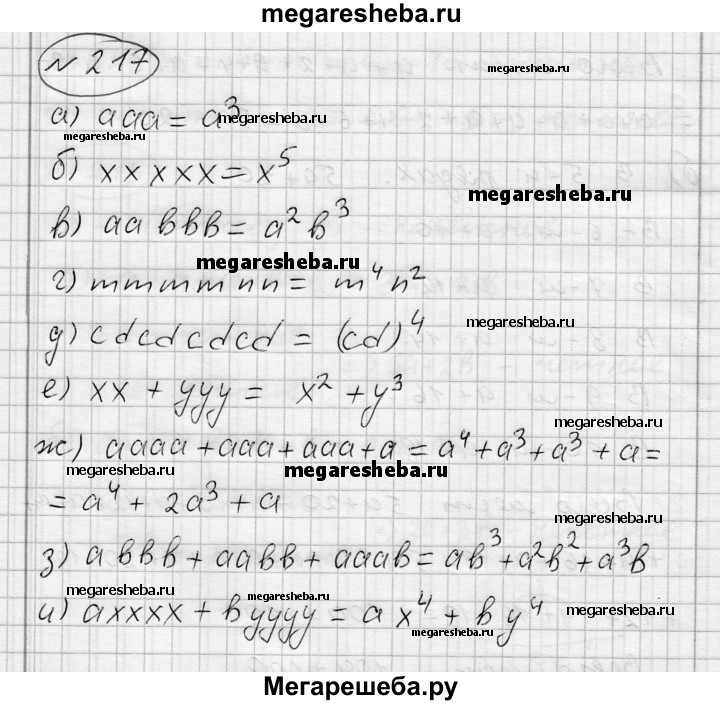 megaresheba.ru
№ 217
а) ааа = а³
megaresheba.ru
megaresheba.ru
megaresheba.ru
б) xxxxx = x⁵
megaresheba.ru
в) aa bbb = a² b³
megaresheba.ru
г) mmmm nn = m⁴ n²
д) cdcdcdcd = (cd)⁴
megaresheba.ru
е) xx + yyy = x² + y³
megaresheba.ru
ж) aaaa + aaa + aaa + a = a⁴ + a³ + a³ + a =
megaresheba.ru
megaresheba.ru
= a⁴ + 2a³ + a
megaresheba.ru
з) abbb + aabb + aaab = ab³ + a²b² + a³b
megaresheba.ru
megaresheba.ru
и) axxxx + byyyy = ax⁴ + by⁴
megaresheba.ru
megaresheba.ru
megaresheba.ru
Мегарешеба.ру